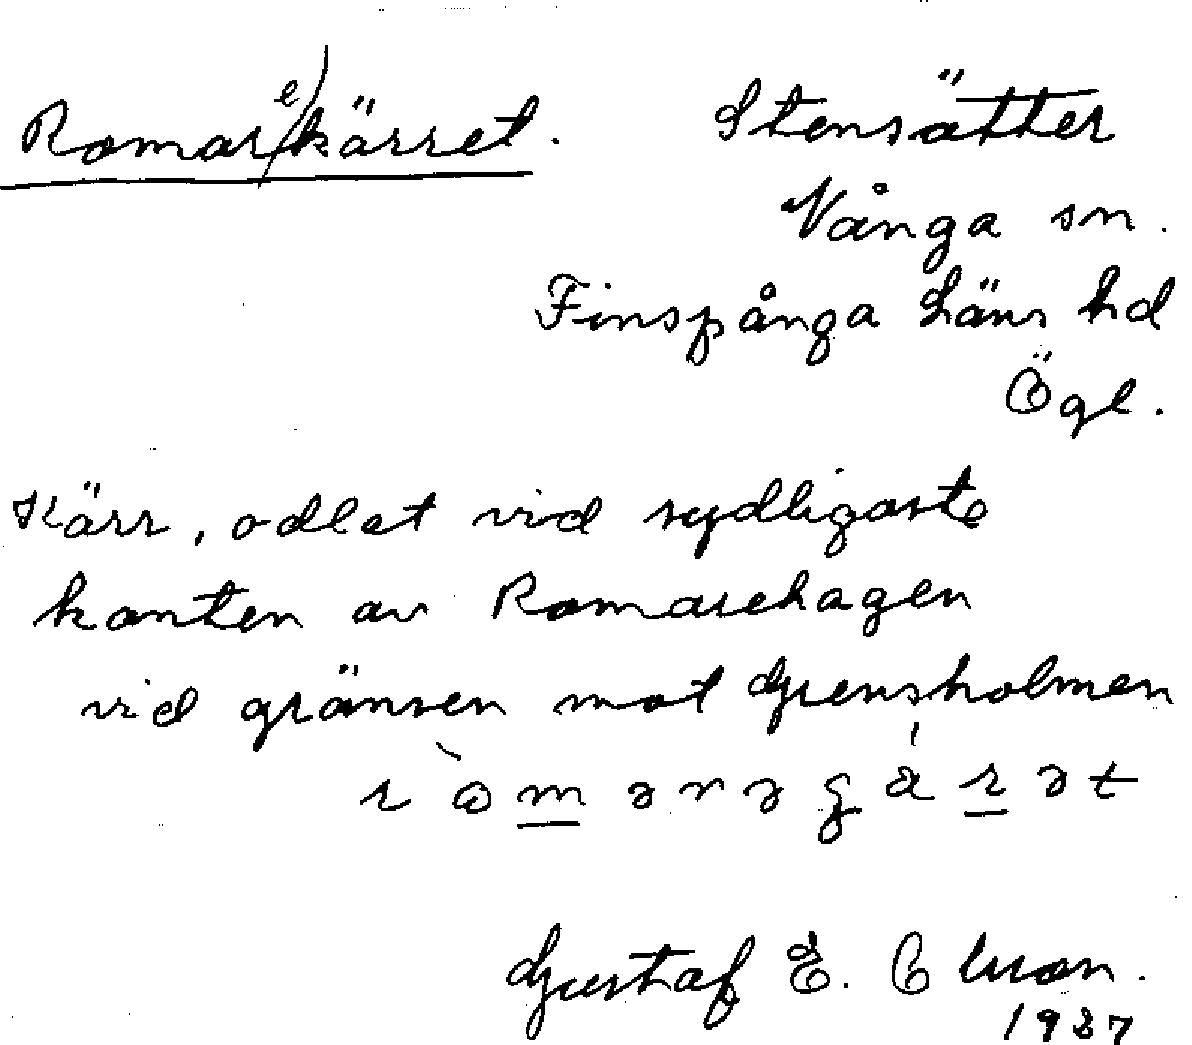 Romarekärret. Stensätter
Vånga sn.
Finspånga läns hd
Ögl.
Kärr, odlat vid sydligaste
kanten av Romarehagen
vid gränsen mot Grensholmen
Gustaf E.
1937